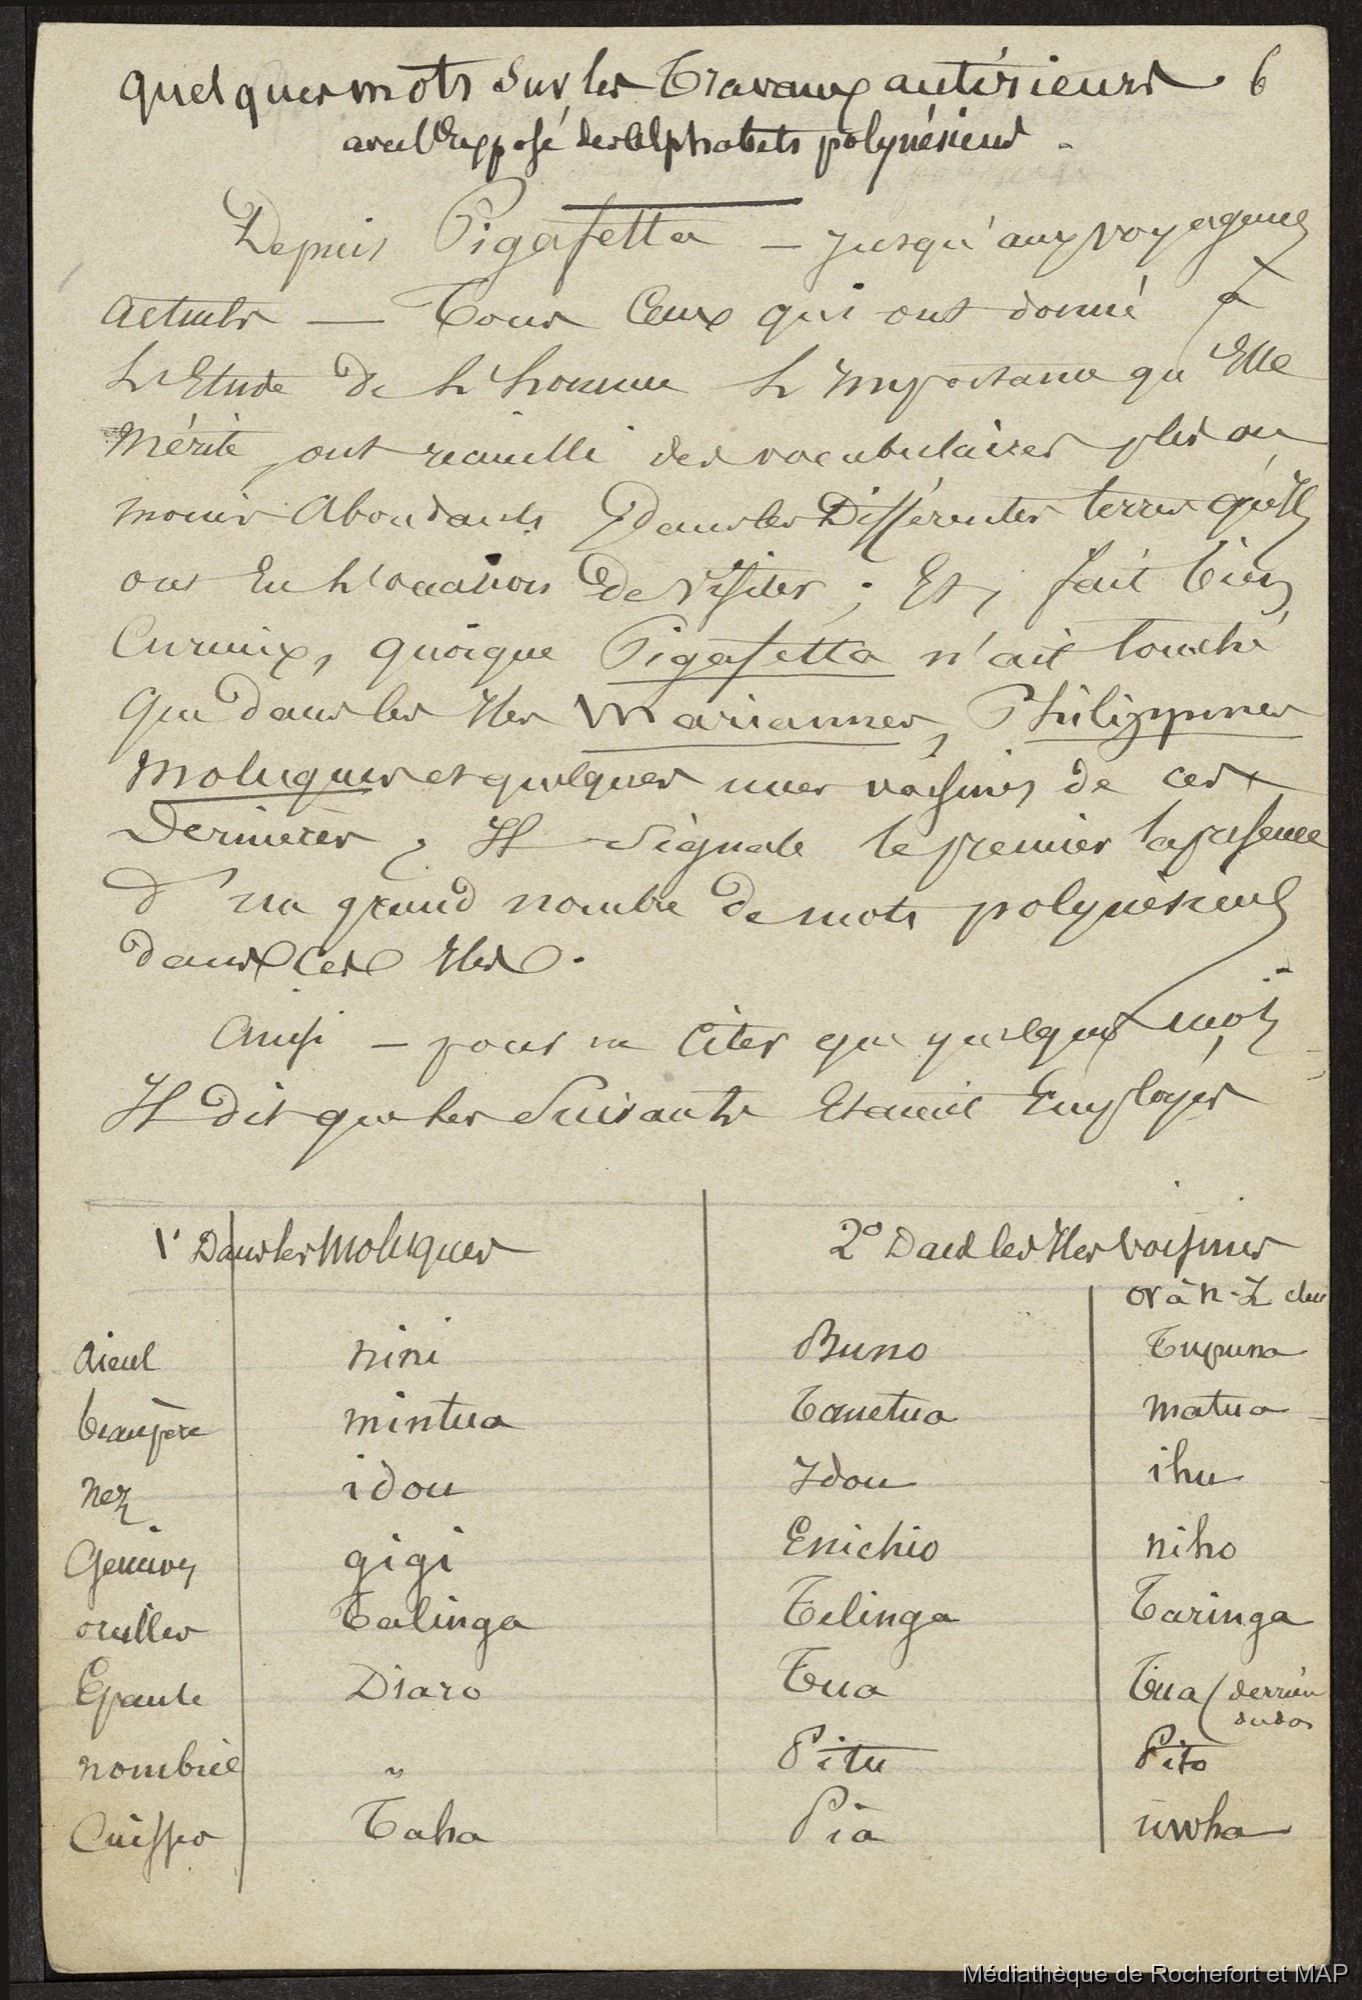 quelques mots sur les Travaux antérieurs. 6
avec l'Exposé des Alphabets polynésiens.
Depuis Pigafetta — jusqu'aux voyageurs
actuels — Tous Ceux qui ont donné à
L'Etude de L'homme L'Importance qu'Elle
mérite, ont recueilli des vocabulaires plus ou
moins Abondants, dans les Différentes terres qu'Ils
ont Eu L'occasion De Visiter ; Et, fait bien
Curieux, quoique Pigafetta n'ait touché
que dans les Iles Mariannes, Philippines
Moluques et quelques unes voisines de ces
Dernières, Il Signale le premier la présence
D'un grand nombre De mots polynésiens
dans Ces Iles.
Ainsi — pour ne Citer que quelques mots
Il dit que les Suivants Etaient Employés
1° Dans les Moluques 2° Dans les Iles voisines
or à N-Z
Aïeul nini Buno Tupuna
beaupère mintua Tametua matua
Nez idou Idou ihu
Gencives gigi Enichio niho
oreilles Talinga Telinga Taringa
Epaule Diaro Tua Tua (derrière
du dos
nombril " Pitu Pito
Cuisses Taha Pia uwha
Médiathèque de Rochefort et MAP